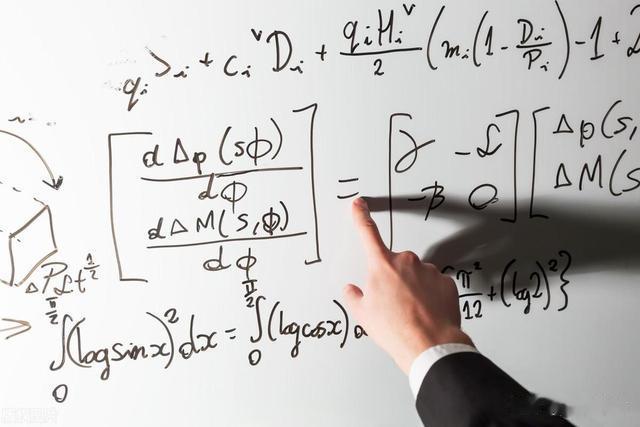 q_i > _i + c_i^v D_i + \frac{q_i H_i^v}{2} (m_i(1 - \frac{D_i}{P_i}) - 1 + 2
[\frac{dΔp(sϕ)}{dϕ} \frac{dΔM(s,ϕ)}{dϕ}] = [γ -ℒ -β 0] [Δp(s, ΔM(s
ΔPℒt^{\frac{1}{2}}
∫_0^{\frac{π}{2}} (log sin x)^2 dx = ∫_0^{\frac{π}{2}} (log cos x) \frac{π^2}{12} + (lg2)^2}